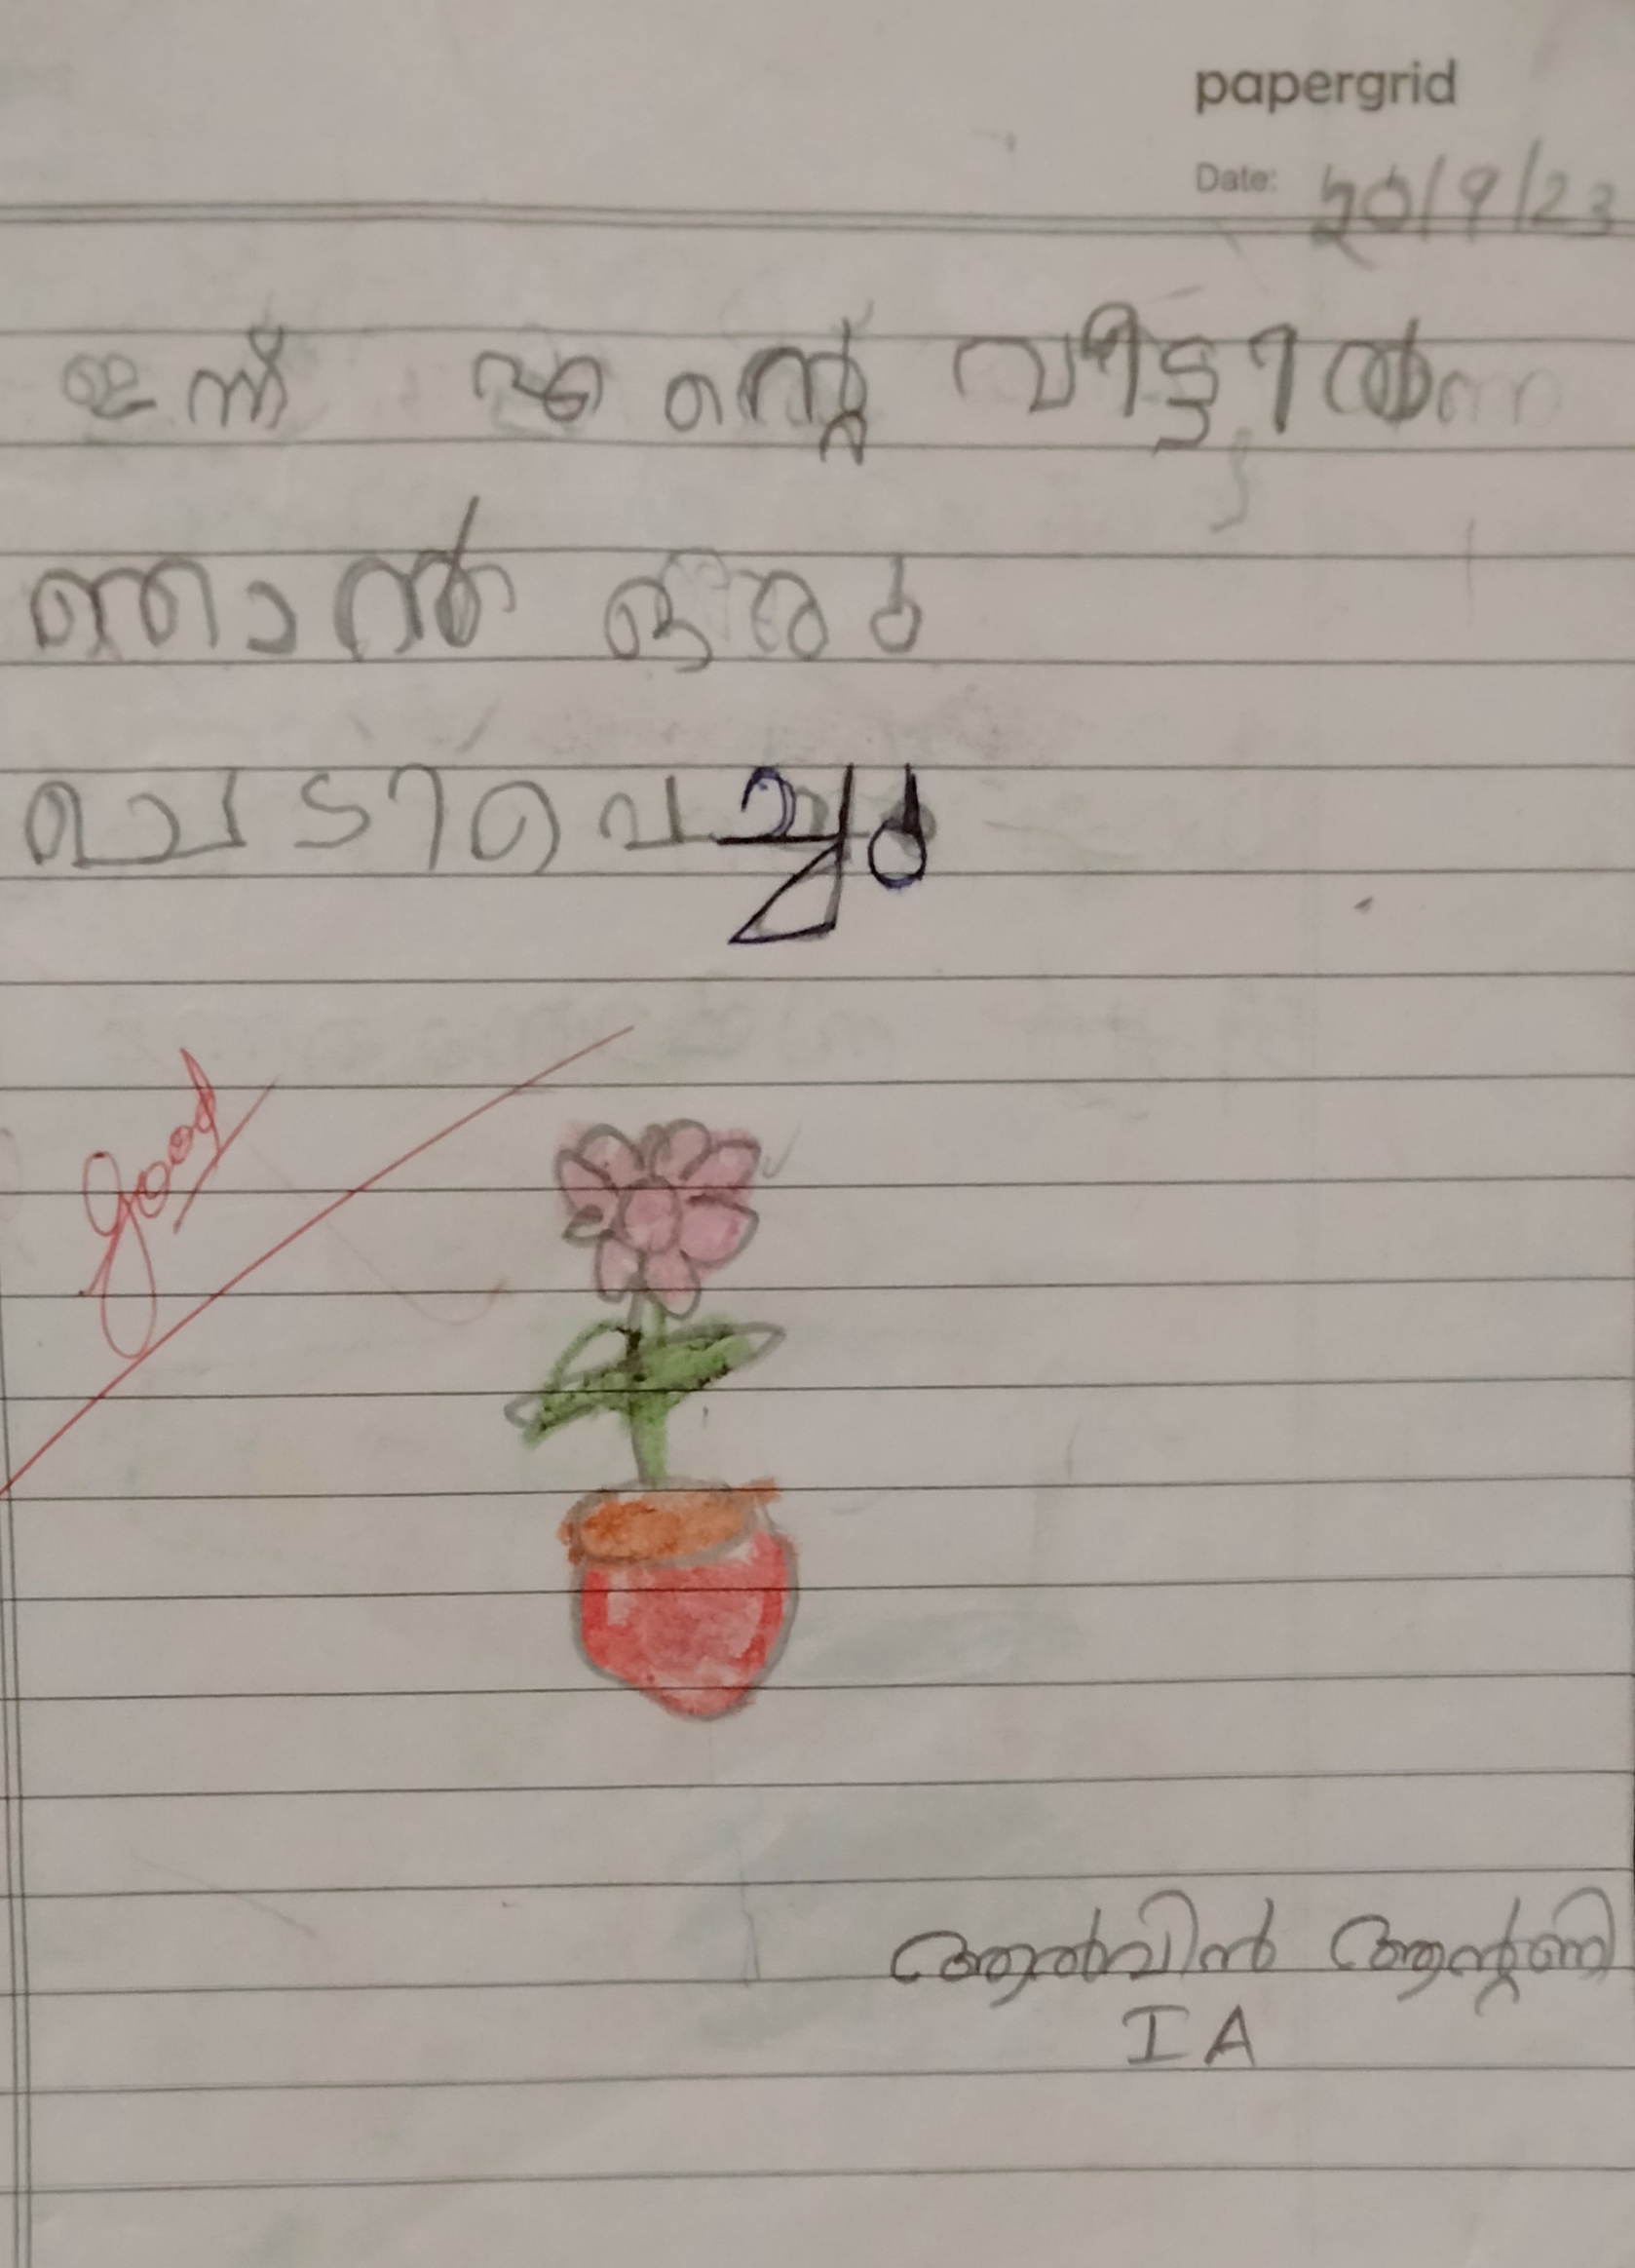 papergrid
Date: 20/9/23
ഇന്ന് എന്റെ വീട്ടിൽ
ഞാൻ ഒരു
ചെടി വെച്ചു
good
ആൽവിൻ ആന്റണി
I A